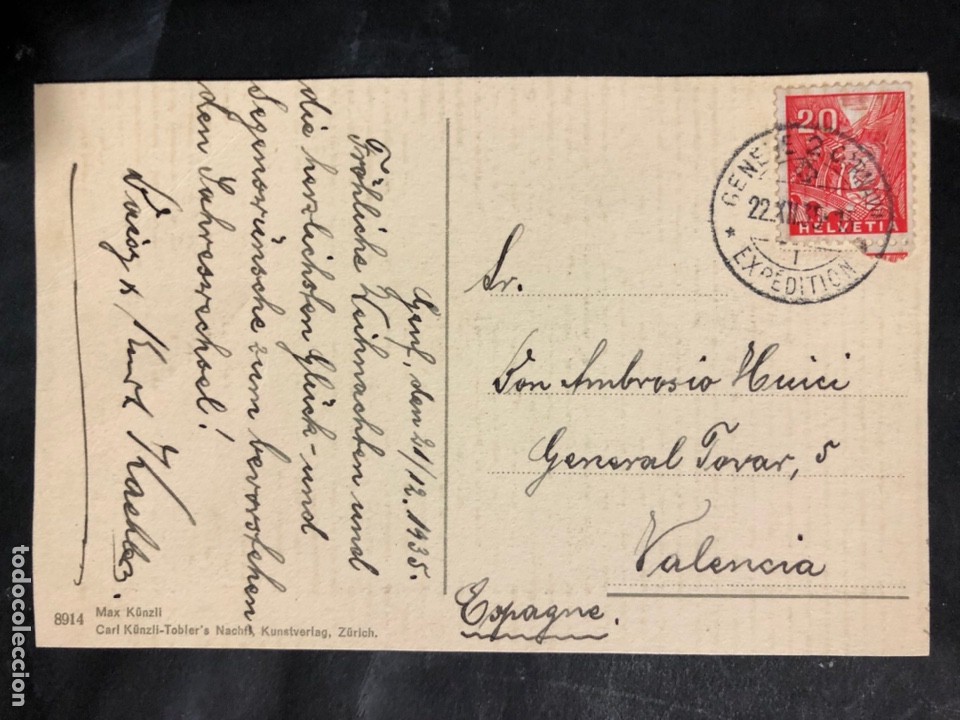 Genf, den 21/12.1935.
Fröhliche Weihnachten und
die herzlichsten Glück- und
Segenswünsche zum bevorstehen
den Jahreswechsel!
Kurt
Sr.
Don Ambrosio Huici
General Tovar, 5
Valencia
Espagne.
20
HELVETIA
GENEVE
22.XII.
EXPEDITION
8914
Max Künzli
Carl Künzli-Tobler's Nachf., Kunstverlag, Zürich.
todocoleccion